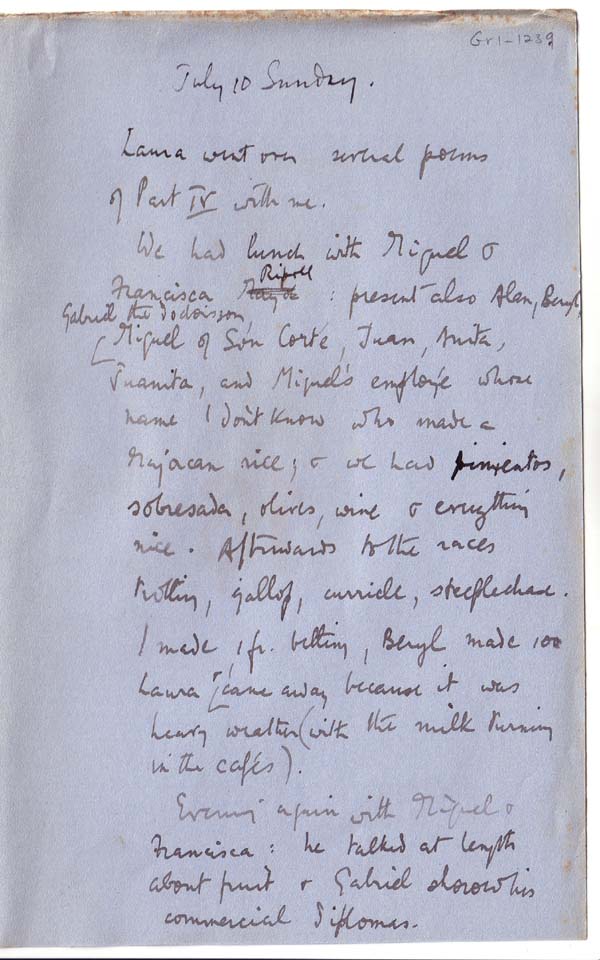 Gr1-1239
July 10 Sunday.
Laura went over several poems
of Part IV with me.
We had lunch with Miguel &
Ripoll
Francisca : present also Alan, Beryl,
Gabriel the
Miguel of Són Corté, Juan, Anita,
Juanita, and Miguel's employée whose
name I don't know who made a
Majorcan rice; & we had pimientos,
sobresada, olives, wine & everything
nice. Afterwards to the races
trotting, gallop, curricle, steeplechase.
I made 1 fr. betting, Beryl made 100
Laura & I came away because it was
heavy weather (with the milk turning
in the cafés).
Evening again with Miguel &
Francisca: he talked at length
about fruit & Gabriel showed his
commercial diplomas.